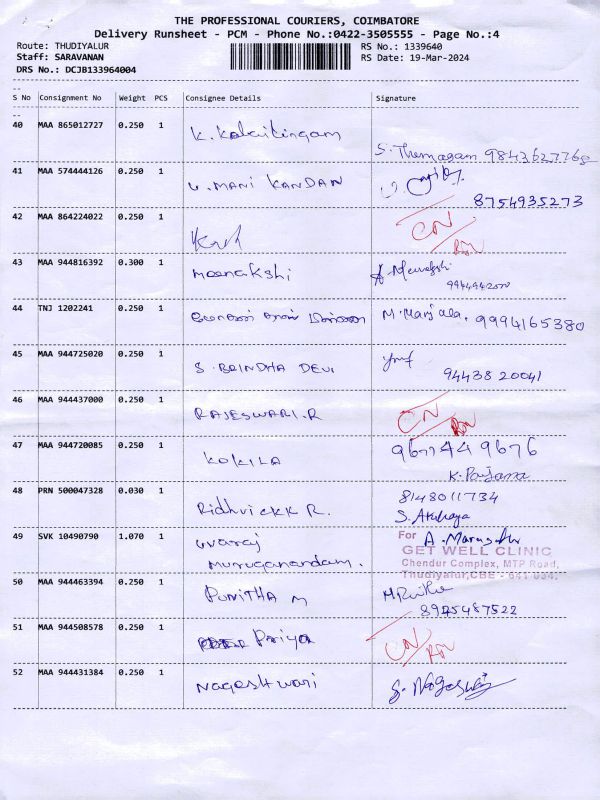 THE PROFESSIONAL COURIERS, COIMBATORE
Delivery Runsheet - PCM - Phone No.:0422-3505555 - Page No.:4
Route: THUDIYALUR RS No.: 1339640
Staff: SARAVANAN RS Date: 19-Mar-2024
DRS No.: DCJB133964004
S No Consignment No Weight PCS Consignee Details Signature
40 MAA 865012727 0.250 1 K. Kalailingam
S.
41 MAA 574444126 0.250 1 U. MANI KANDAN
8754935273
42 MAA 864224022 0.250 1 CN
RN
43 MAA 944816392 0.300 1 meenakshi
44 TNJ 1202241 0.250 1 M. Manjula. 9994165380
45 MAA 944725020 0.250 1 S. BRINDHA DEVI
94438 20041
46 MAA 944437000 0.250 1 RAJESWARI.R CN
RN
47 MAA 944720085 0.250 1 KOKILA
K.
48 PRN 500047328 0.030 1 Ridhvickk R. 8148011734
S.
49 SVK 10490790 1.070 1 uvaraj For A.
muruganandam. GET WELL CLINIC
Chendur Complex, MTP Road,
Thudiyalur, CBE - 641 034.
50 MAA 944463394 0.250 1 PUNITHA M
51 MAA 944508578 0.250 1 Priya CN
RN
52 MAA 944431384 0.250 1 Nageshwari